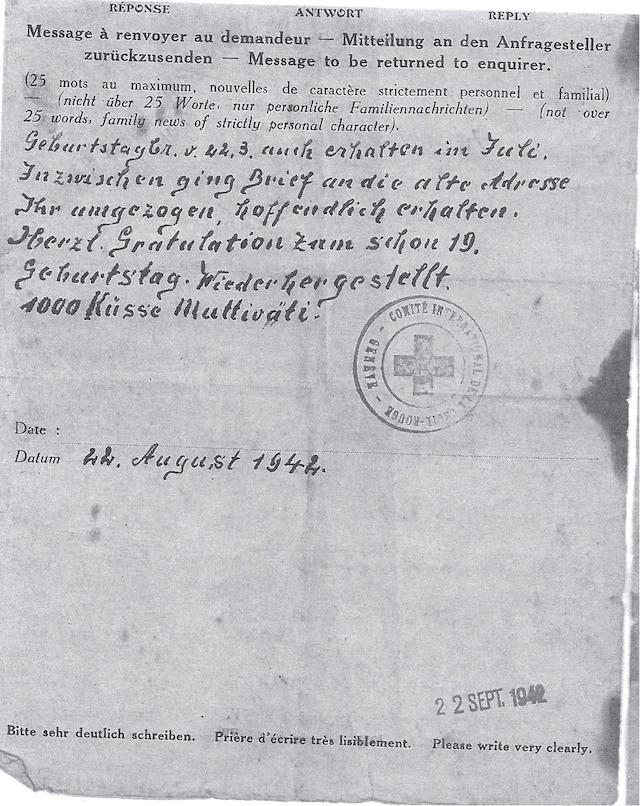 RÉPONSE ANTWORT REPLY
Message à renvoyer au demandeur — Mitteilung an den Anfragesteller
zurückzusenden — Message to be returned to enquirer.
(25 mots au maximum, nouvelles de caractère strictement personnel et familial)
— (nicht über 25 Worte, nur persönliche Familiennachrichten) — (not over
25 words, family news of strictly personal character).
Geburtstagbr. v. 22.3. auch erhalten im Juli.
Inzwischen ging Brief an die alte Adresse
Ihr umgezogen, hoffendlich erhalten.
Herzl. Gratulation zum schon 19.
Geburtstag. Wiederhergestellt.
1000 Küsse Muttiväti.
COMITÉ INTERNATIONAL DE LA CROIX-ROUGE — GENÈVE —
Date :
Datum 22. August 1942.
22 SEPT. 1942
Bitte sehr deutlich schreiben. Prière d'écrire très lisiblement. Please write very clearly.